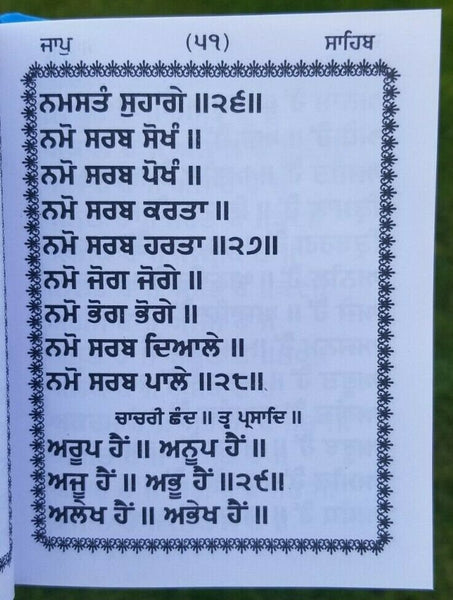 ਜਾਪੁ (੫੧) ਸਾਹਿਬ
ਨਮਸਤੰ ਸੁਹਾਗੇ ॥੨੬॥
ਨਮੋ ਸਰਬ ਸੋਖੰ ॥
ਨਮੋ ਸਰਬ ਪੋਖੰ ॥
ਨਮੋ ਸਰਬ ਕਰਤਾ ॥
ਨਮੋ ਸਰਬ ਹਰਤਾ ॥੨੭॥
ਨਮੋ ਜੋਗ ਜੋਗੇ ॥
ਨਮੋ ਭੋਗ ਭੋਗੇ ॥
ਨਮੋ ਸਰਬ ਦਿਆਲੇ ॥
ਨਮੋ ਸਰਬ ਪਾਲੇ ॥੨੮॥
ਚਾਚਰੀ ਛੰਦ ॥ ਤ੍ਵ ਪ੍ਰਸਾਦਿ ॥
ਅਰੂਪ ਹੈਂ ॥ ਅਨੂਪ ਹੈਂ ॥
ਅਜੂ ਹੈਂ ॥ ਅਭੂ ਹੈਂ ॥੨੯॥
ਅਲੇਖ ਹੈਂ ॥ ਅਭੇਖ ਹੈਂ ॥